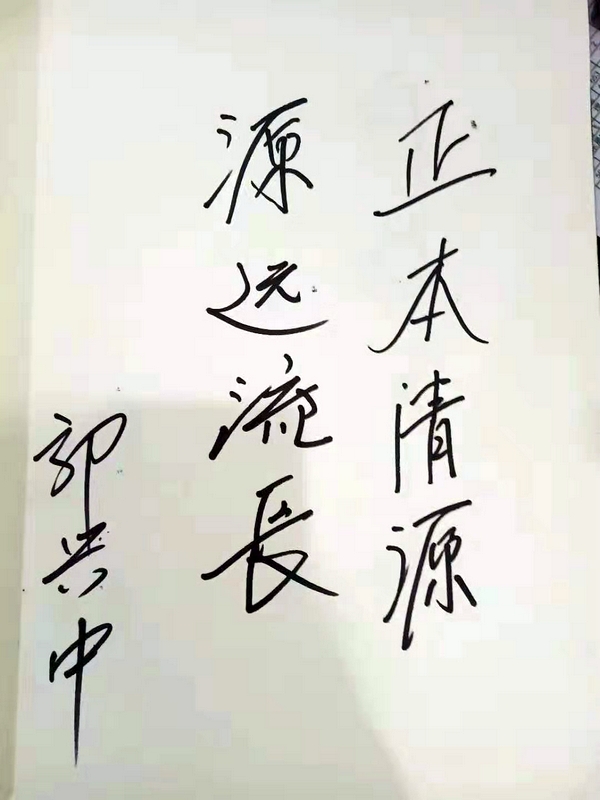 正本清源
源远流長
郭兴中